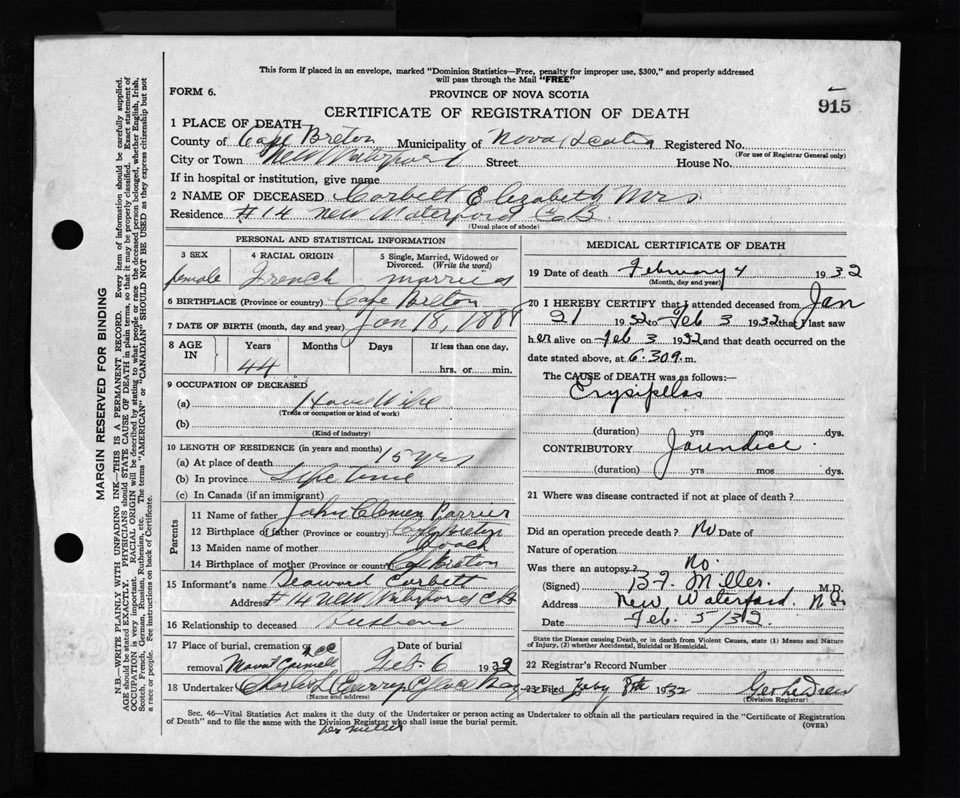 This form if placed in an envelope, marked "Dominion Statistics—Free, penalty for improper use, $300," and properly addressed
will pass through the Mail "FREE"
FORM 6.
PROVINCE OF NOVA SCOTIA
915
CERTIFICATE OF REGISTRATION OF DEATH
1 PLACE OF DEATH
County of Cape Breton Municipality of Nova Scotia Registered No.
(For use of Registrar General only)
City or Town New Waterford Street House No.
If in hospital or institution, give name
2 NAME OF DECEASED Corbett Elizabeth Mrs
Residence #14 New Waterford C.B.
(Usual place of abode)
PERSONAL AND STATISTICAL INFORMATION
3 SEX 4 RACIAL ORIGIN 5 Single, Married, Widowed or Divorced. (Write the word)
female French married
6 BIRTHPLACE (Province or country) Cape Breton
7 DATE OF BIRTH (month, day and year) Jan 18, 1888
8 AGE IN Years Months Days If less than one day,
44 hrs. or min.
9 OCCUPATION OF DECEASED
(a) House Wife
(Trade or occupation or kind of work)
(b)
(Kind of industry)
10 LENGTH OF RESIDENCE (in years and months)
(a) At place of death 15 yrs
(b) In province Life time
(c) In Canada (if an immigrant)
Parents
11 Name of father John Clemen
12 Birthplace of father (Province or country) Cape Breton
13 Maiden name of mother Roach
14 Birthplace of mother (Province or country) C. Breton
15 Informant's name Seaward Corbett
Address #14 New Waterford C B
16 Relationship to deceased Husband
17 Place of burial, cremation or removal Mount Carmell Date of burial Feb. 6 1932
18 Undertaker Charles L Curry
(Name and address)
MEDICAL CERTIFICATE OF DEATH
19 Date of death February 4 1932
(Month, day and year)
20 I HEREBY CERTIFY that I attended deceased from Jan
21 1932 to Feb 3 1932 that I last saw
her alive on Feb 3 1932 and that death occurred on the
date stated above, at 6.30 a.m.
The CAUSE of DEATH was as follows:—
Erysipelas
(duration) yrs mos dys.
CONTRIBUTORY Jaundice
(duration) yrs mos dys.
21 Where was disease contracted if not at place of death?
Did an operation precede death? No Date of
Nature of operation
Was there an autopsy? No.
(Signed) B.F. Miller. M.D.
Address New Waterford. N.S.
Date Feb. 5/32
State the Disease causing Death, or in death from Violent Causes, state (1) Means and Nature
of Injury, (2) whether Accidental, Suicidal or Homicidal.
22 Registrar's Record Number
23 Filed Feby 8th 1932
(Division Registrar)
Sec. 46—Vital Statistics Act makes it the duty of the Undertaker or person acting as Undertaker to obtain all the particulars required in the "Certificate of Registration
of Death" and to file the same with the Division Registrar who shall issue the burial permit.
(OVER)
MARGIN RESERVED FOR BINDING
N.B.—WRITE PLAINLY WITH UNFADING INK—THIS IS A PERMANENT RECORD. Every item of information should be carefully supplied.
AGE should be stated EXACTLY. PHYSICIANS should STATE CAUSE OF DEATH in plain terms, so that it may be properly classified. Exact statement of
OCCUPATION is very important. RACIAL ORIGIN will be described by stating to what people or race the deceased person belonged, whether English, Irish,
Scotch, French, German, Russian, Ruthenian, etc. The terms "AMERICAN" or "CANADIAN" SHOULD NOT BE USED as they express citizenship but not
a race or people. See instructions on back of Certificate.